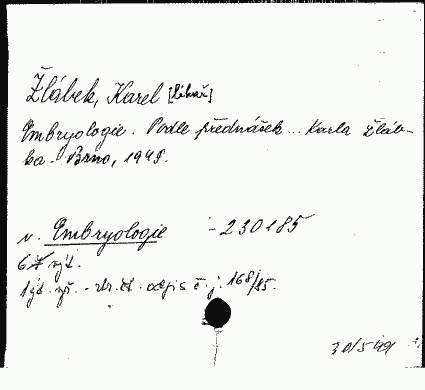 Žlábek, Karel [lékař]
Embryologie. Podle přednášek... Karla Žláb-
ka. Brno, 1948.
v. Embryologie - 230185
výt.
1 výt. vyř. - odpis č. j. 168/85.
30/5 49